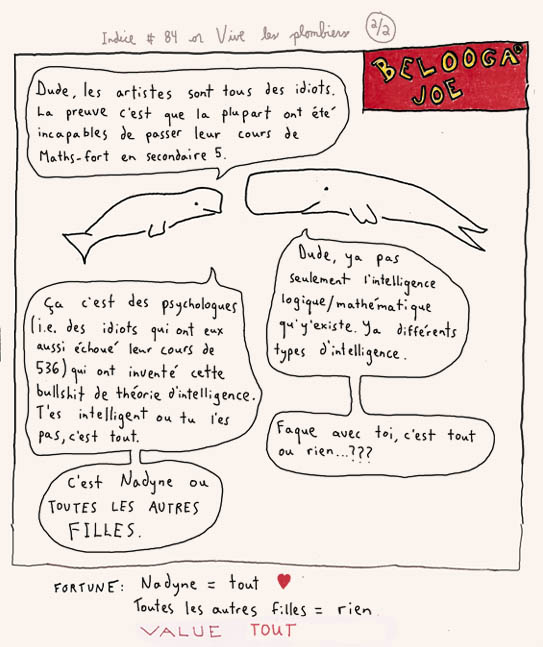 Indice # 84 or Vive les plombiers 2/2
BELOOGA
JOE
Dude, les artistes sont tous des idiots.
La preuve c'est que la plupart ont été
incapables de passer leur cours de
Maths-fort en secondaire 5.
Dude, ya pas
seulement l'intelligence
logique/mathématique
qu'y'existe. Ya différents
types d'intelligence.
Ça c'est des psychologues
(i.e. des idiots qui ont eux
aussi échoué leur cours de
536) qui ont inventé cette
bullshit de théorie d'intelligence.
T'es intelligent ou tu l'es
pas, c'est tout.
Faque avec toi, c'est tout
ou rien...???
C'est Nadyne ou
TOUTES LES AUTRES
FILLES.
FORTUNE: Nadyne = tout ♥
Toutes les autres filles = rien
VALUE TOUT